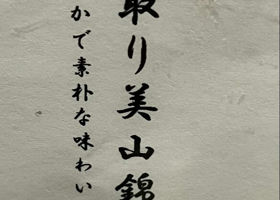 取り美山錦
かで素朴な味わい